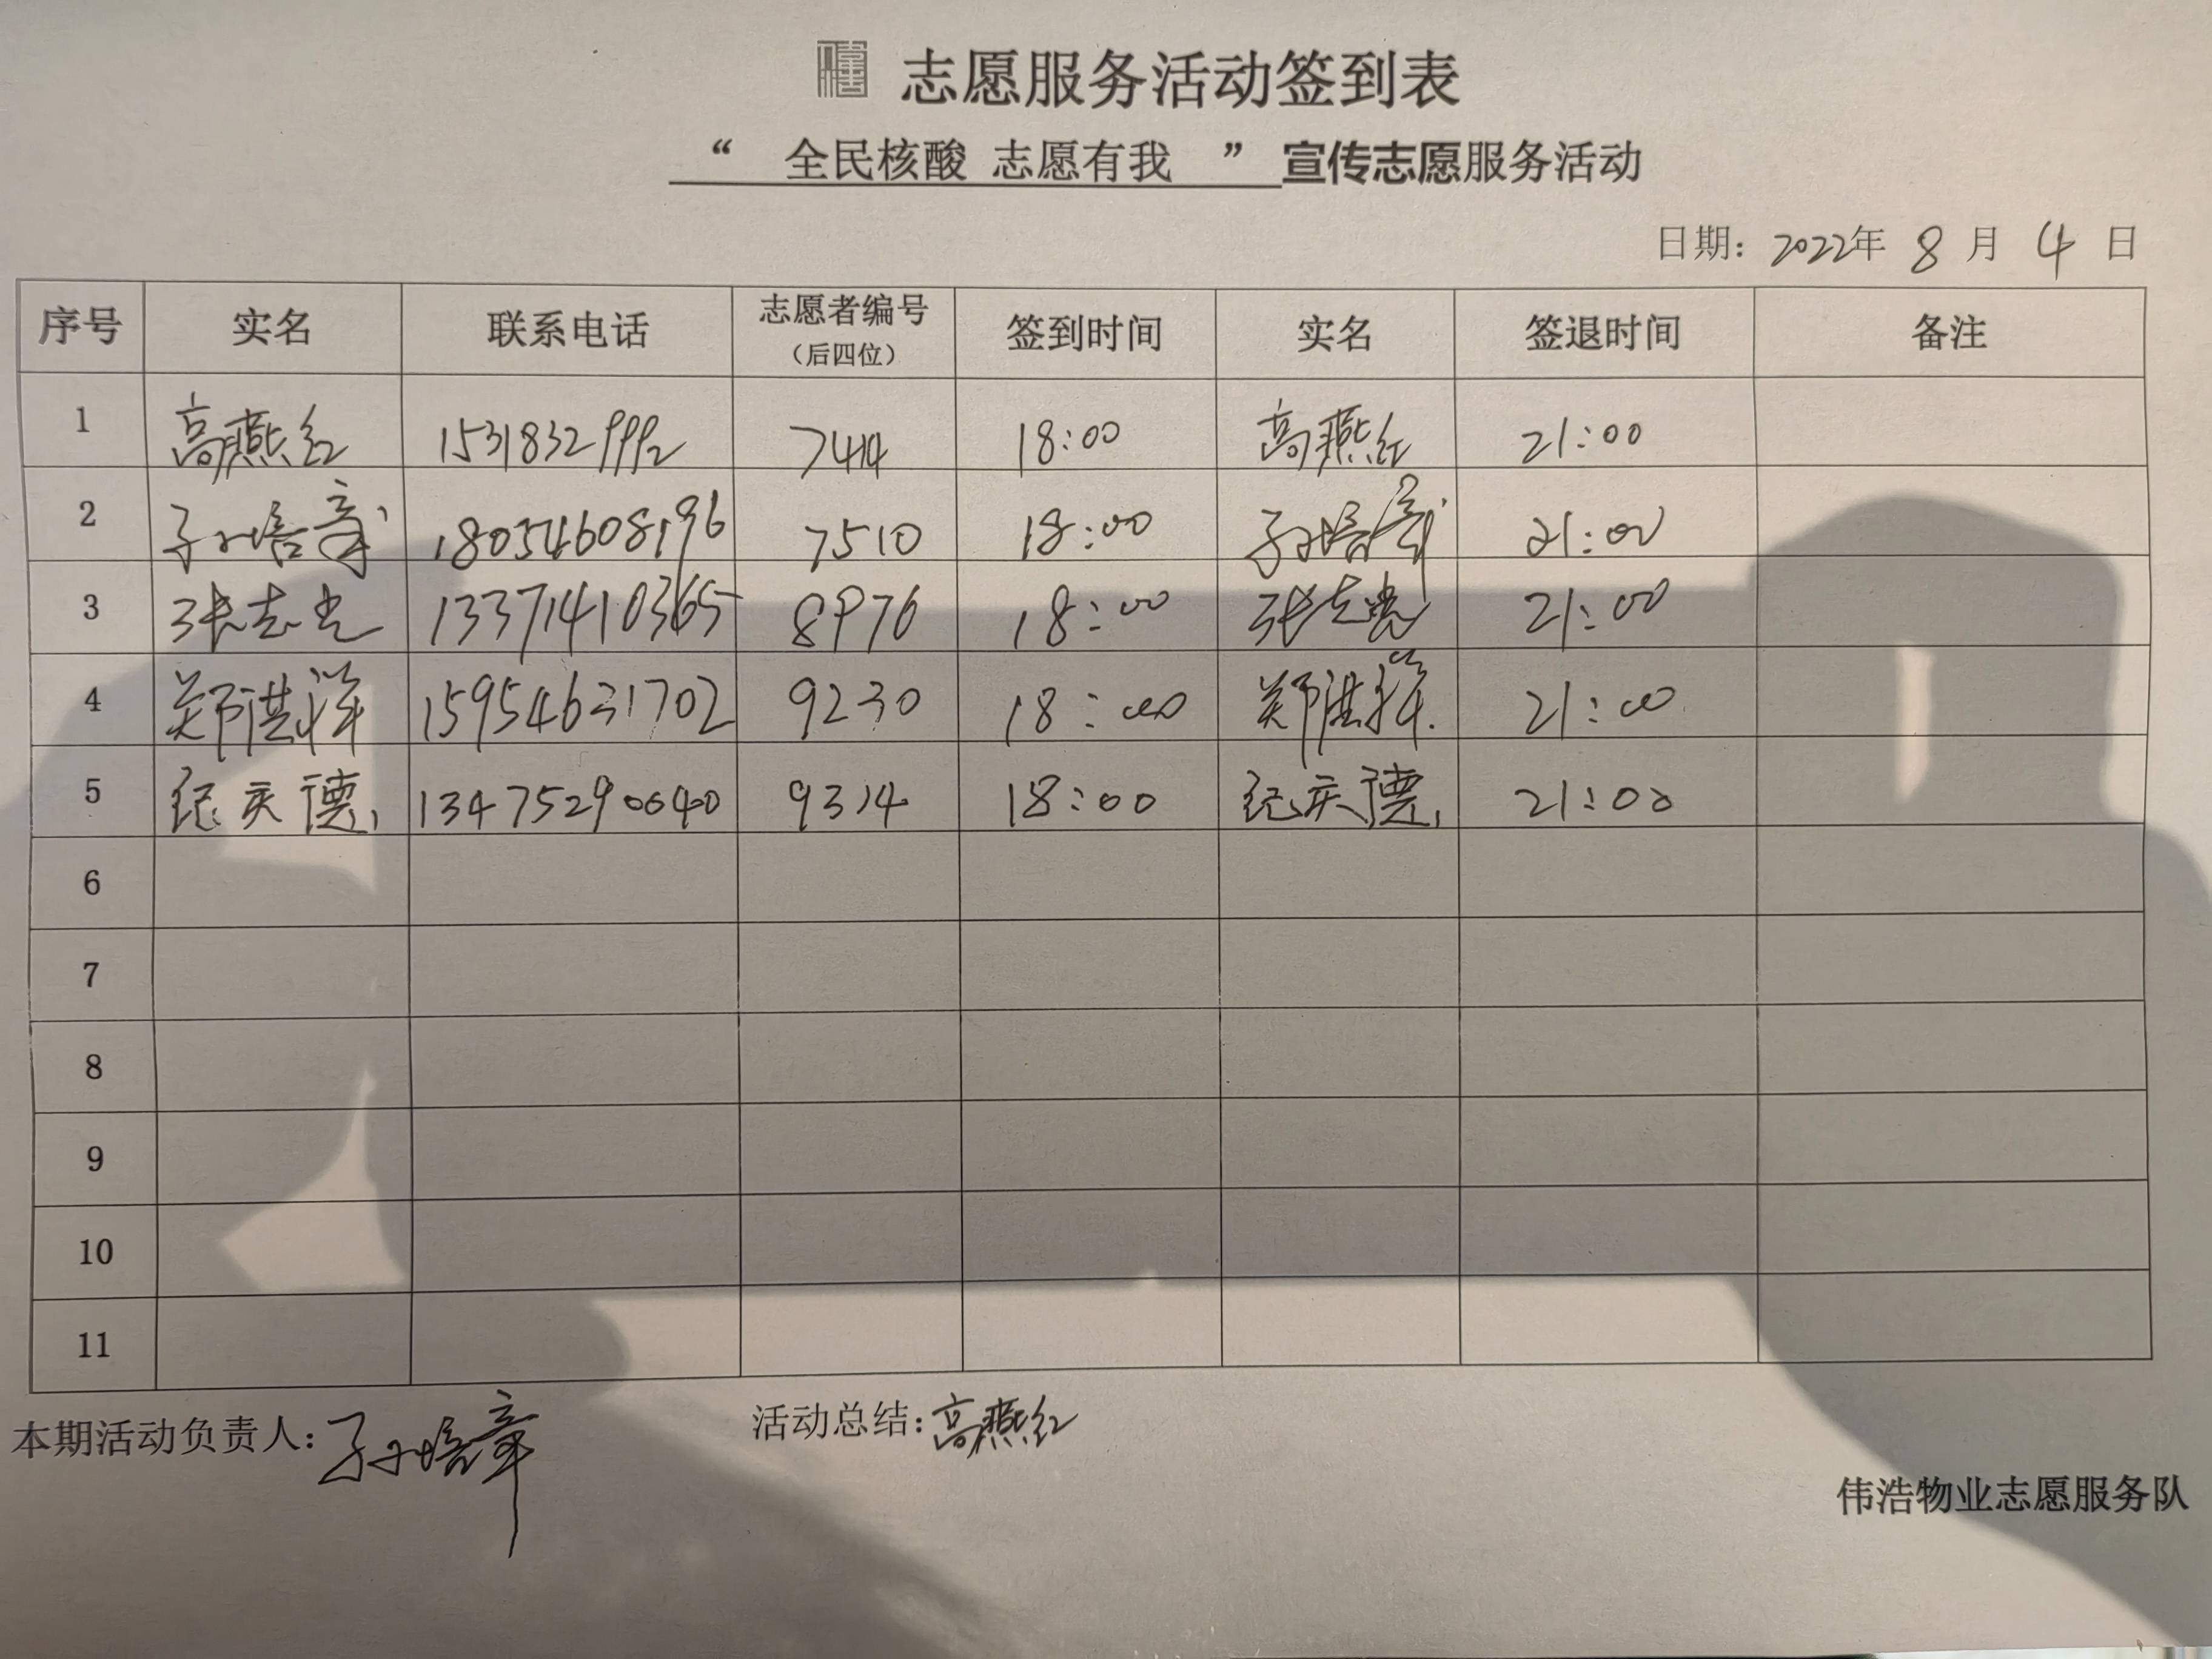 志愿服务活动签到表
“ 全民核酸 志愿有我 ” 宣传志愿服务活动
日期: 2022年 8 月 4 日
序号 实名 联系电话 志愿者编号（后四位） 签到时间 实名 签退时间 备注
1 高燕红 15318329992 7414 18:00 高燕红 21:00
2 孙培章 18054608196 7510 18:00 孙培章 21:00
3 张志光 13371410365 8976 18:00 张志亮 21:00
4 郑洪祥 15954631702 9230 18:00 郑洪祥 21:00
5 纪庆德 13475290040 9314 18:00 纪庆德 21:00
6
7
8
9
10
11
本期活动负责人: 孙培章 活动总结: 高燕红
伟浩物业志愿服务队